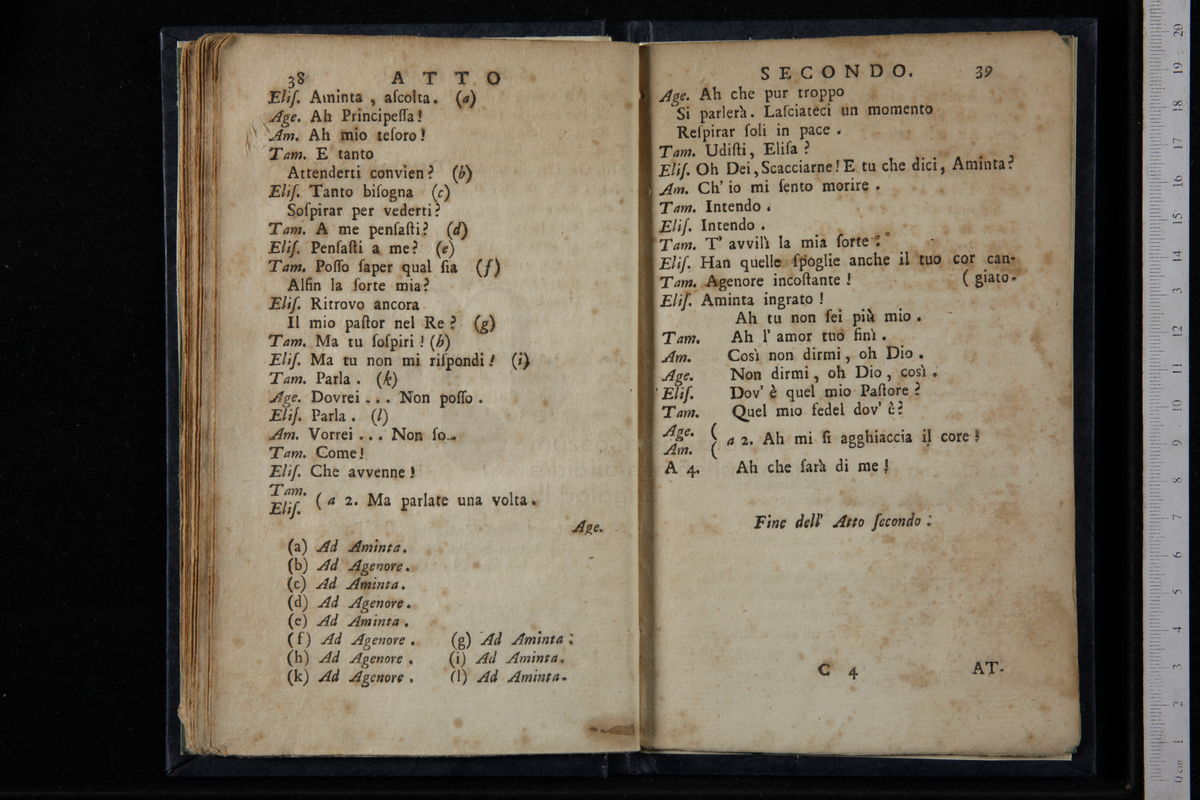 38 ATTO
Eliſ. Aminta , aſcolta. (a)
Age. Ah Principeſſa!
Am. Ah mio teſoro!
Tam. E tanto
Attenderti convien? (b)
Eliſ. Tanto biſogna (c)
Soſpirar per vederti?
Tam. A me penſaſti? (d)
Eliſ. Penſaſti a me? (e)
Tam. Poſſo ſaper qual ſia (f)
Alfin la ſorte mia?
Eliſ. Ritrovo ancora
Il mio paſtor nel Re? (g)
Tam. Ma tu ſoſpiri! (h)
Eliſ. Ma tu non mi riſpondi! (i)
Tam. Parla . (k)
Age. Dovrei . . . Non poſſo .
Eliſ. Parla . (l)
Am. Vorrei . . . Non ſo..
Tam. Come!
Eliſ. Che avvenne!
Tam.
Eliſ. ( a 2. Ma parlate una volta.
Age.
(a) Ad Aminta.
(b) Ad Agenore.
(c) Ad Aminta.
(d) Ad Agenore.
(e) Ad Aminta.
(f) Ad Agenore . (g) Ad Aminta :
(h) Ad Agenore . (i) Ad Aminta.
(k) Ad Agenore . (l) Ad Aminta.
SECONDO. 39
Age. Ah che pur troppo
Si parlerà. Laſciateci un momento
Reſpirar ſoli in pace .
Tam. Udiſti, Eliſa?
Eliſ. Oh Dei, Scacciarne! E tu che dici, Aminta?
Am. Ch' io mi ſento morire .
Tam. Intendo .
Eliſ. Intendo .
Tam. T' avvilì la mia ſorte :
Eliſ. Han quelle ſpoglie anche il tuo cor can-
Tam. Agenore incoſtante! ( giato.
Eliſ. Aminta ingrato!
Ah tu non ſei più mio .
Tam. Ah l' amor tuo finì .
Am. Così non dirmi, oh Dio .
Age. Non dirmi, oh Dio, così .
Eliſ. Dov' è quel mio Paſtore?
Tam. Quel mio fedel dov' è?
Age. (
Am. ( a 2. Ah mi ſi agghiaccia il core!
A 4. Ah che ſarà di me!
Fine dell' Atto ſecondo :
C 4 AT-